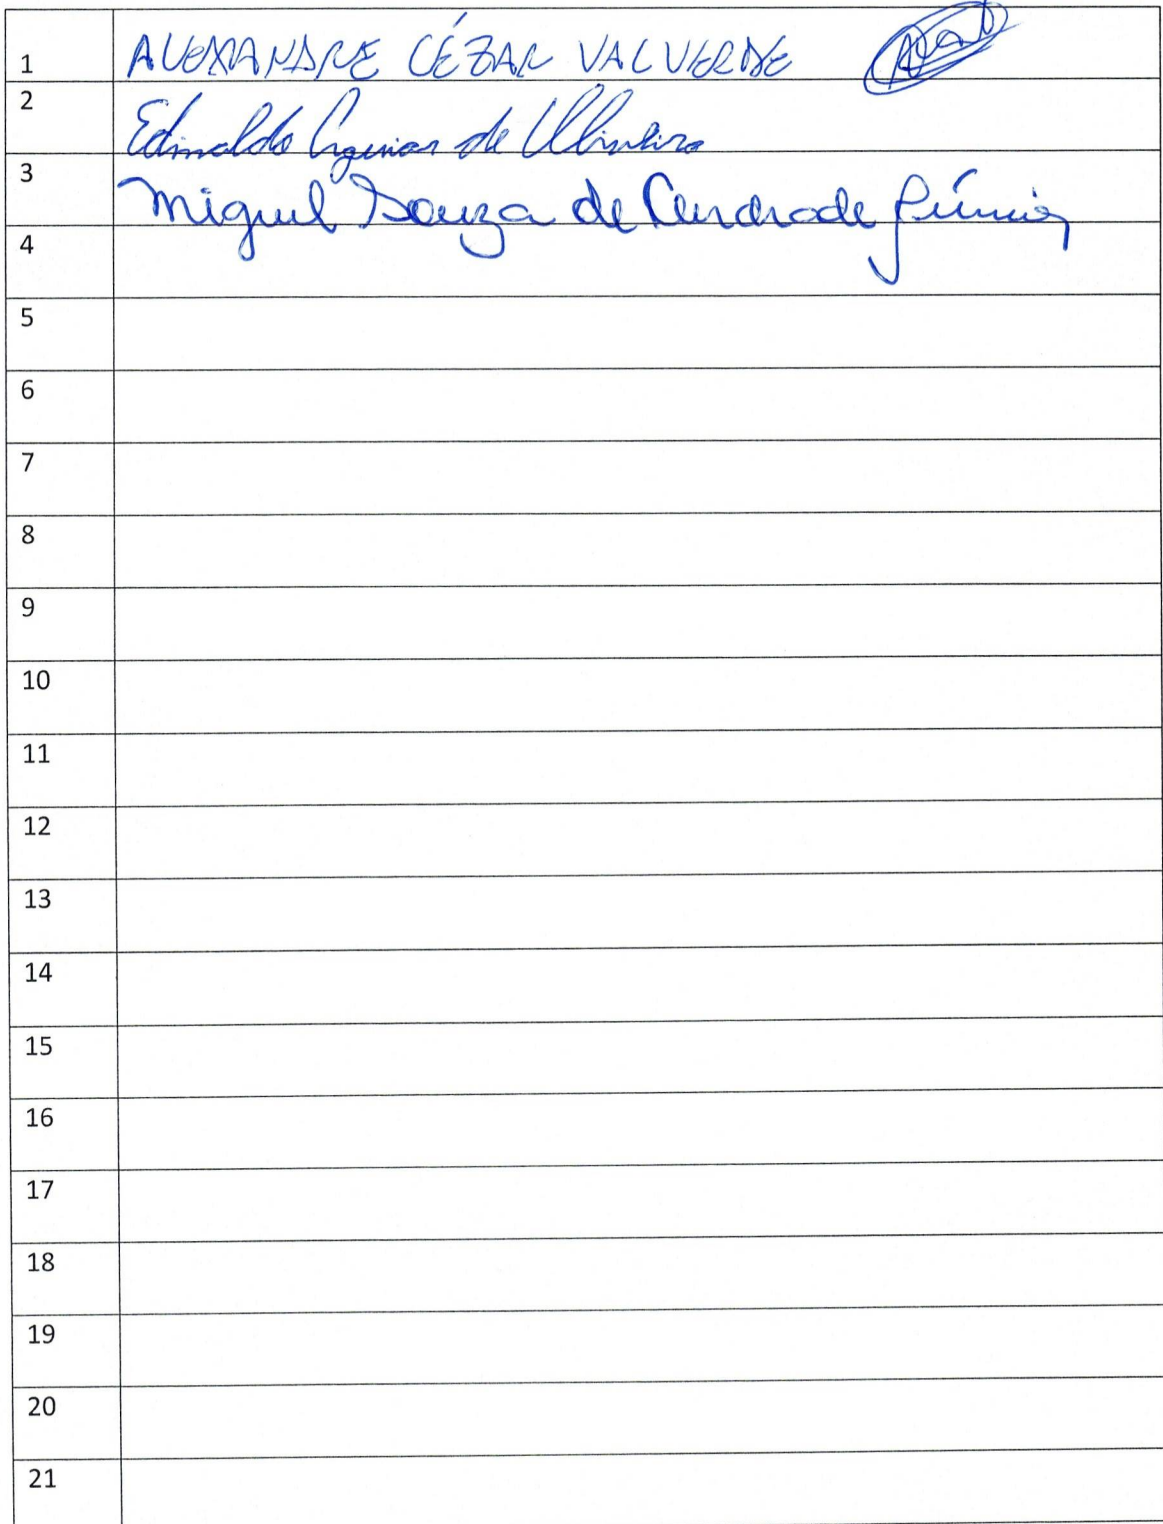 1 ALEXANDRE CÉZAR VALVERDE
2 Edinaldo de
3 Miguel Souza de Andrade Júnior
4
5
6
7
8
9
10
11
12
13
14
15
16
17
18
19
20
21